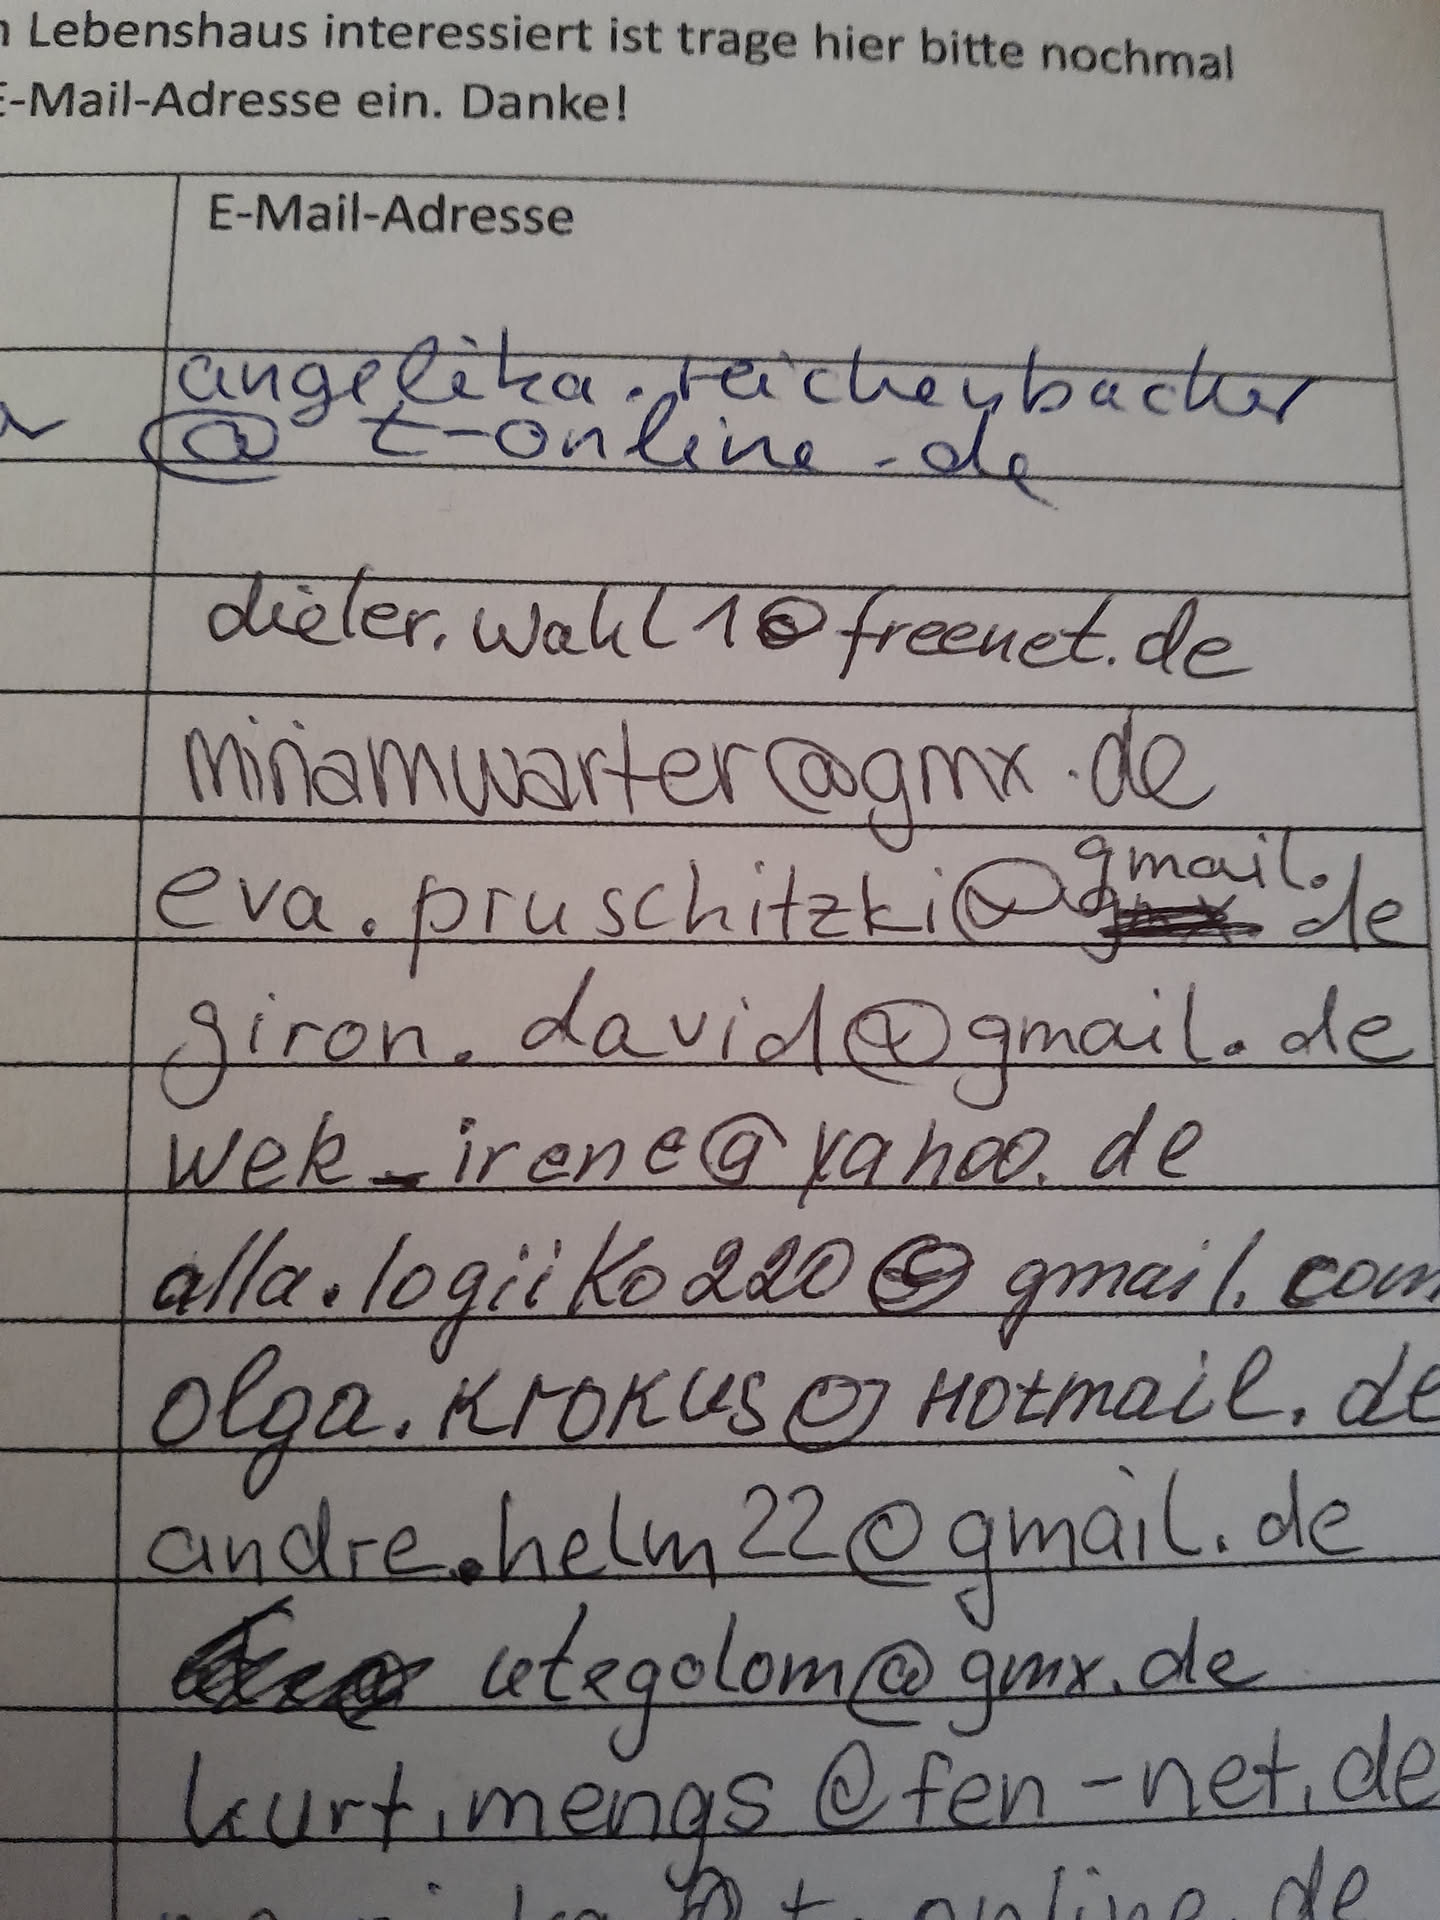 Lebenshaus interessiert ist trage hier bitte nochmal
E-Mail-Adresse ein. Danke!
E-Mail-Adresse
angelika.reichenbacher
@ t-online.de
dieter.wahl1@freenet.de
miriamwarter@gmx.de
gmail.
eva.pruschitzki@ de
giron.david@gmail.de
wek_irene@yahoo.de
alla.logiiko220@gmail.com
olga.krokus@Hotmail.de
andre.helm22@gmail.de
utegolom@gmx.de
kurt.mengs@fen-net.de
@t-online.de